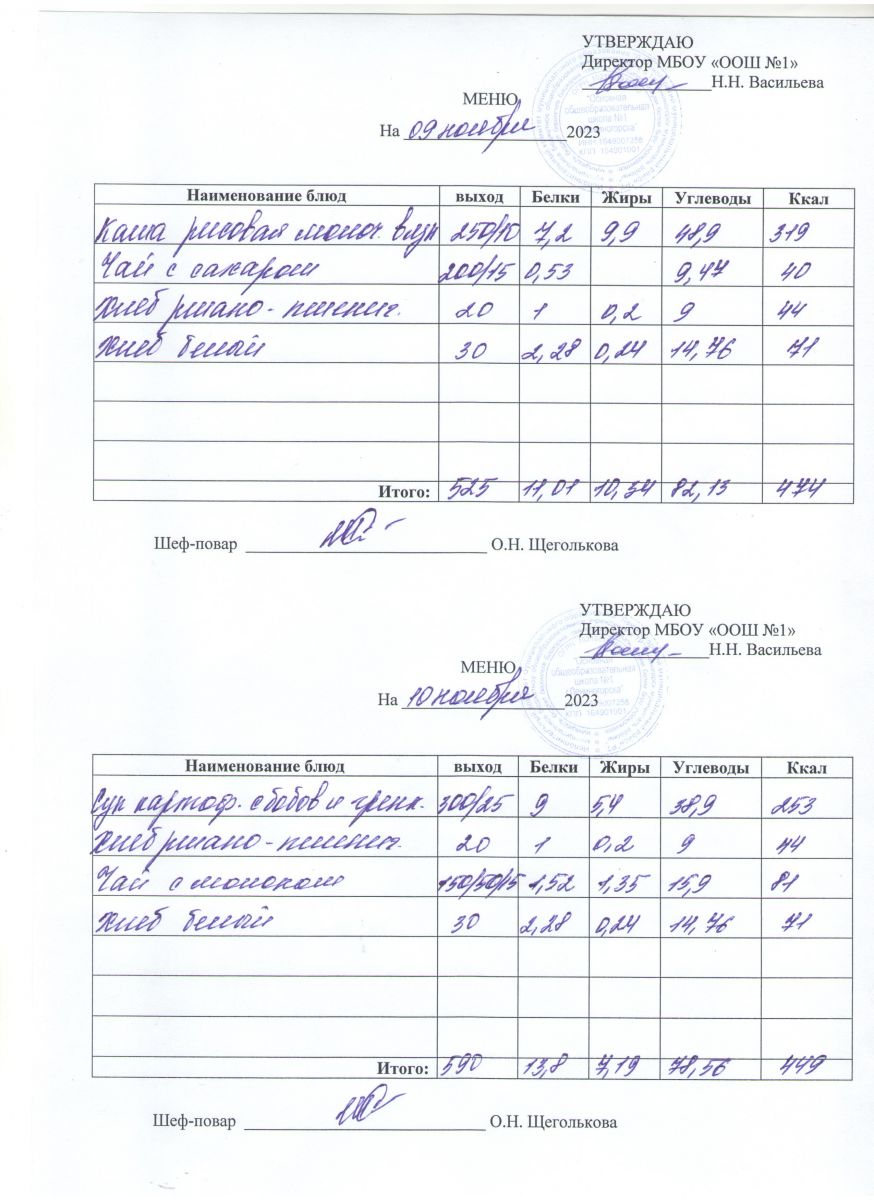 УТВЕРЖДАЮ
Директор МБОУ «ООШ №1»
Н.Н. Васильева
"Основная
общеобразовательная
школа №1
ИНН 1649001258
КПП 164901001
МЕНЮ
На 09 ноября 2023
Наименование блюд выход Белки Жиры Углеводы Ккал
Каша рисовая молоч. 250/10 7,2 9,9 48,9 319
Чай с сахаром 200/15 0,53 9,47 40
Хлеб ржано-пшенич. 20 1 0,2 9 44
Хлеб белый 30 2,28 0,24 14,76 71
Итого: 525 11,01 10,34 82,13 474
Шеф-повар О.Н. Щеголькова
УТВЕРЖДАЮ
Директор МБОУ «ООШ №1»
Н.Н. Васильева
"Основная
общеобразовательная
школа №1
КПП 164901001
МЕНЮ
На 10 ноября 2023
Наименование блюд выход Белки Жиры Углеводы Ккал
Суп картоф. с бобов и гренк. 300/25 9 5,4 38,9 253
Хлеб ржано-пшенич. 20 1 0,2 9 44
Чай с молоком 150/50/15 1,52 1,35 15,9 81
Хлеб белый 30 2,28 0,24 14,76 71
Итого: 590 13,8 7,19 78,56 449
Шеф-повар О.Н. Щеголькова